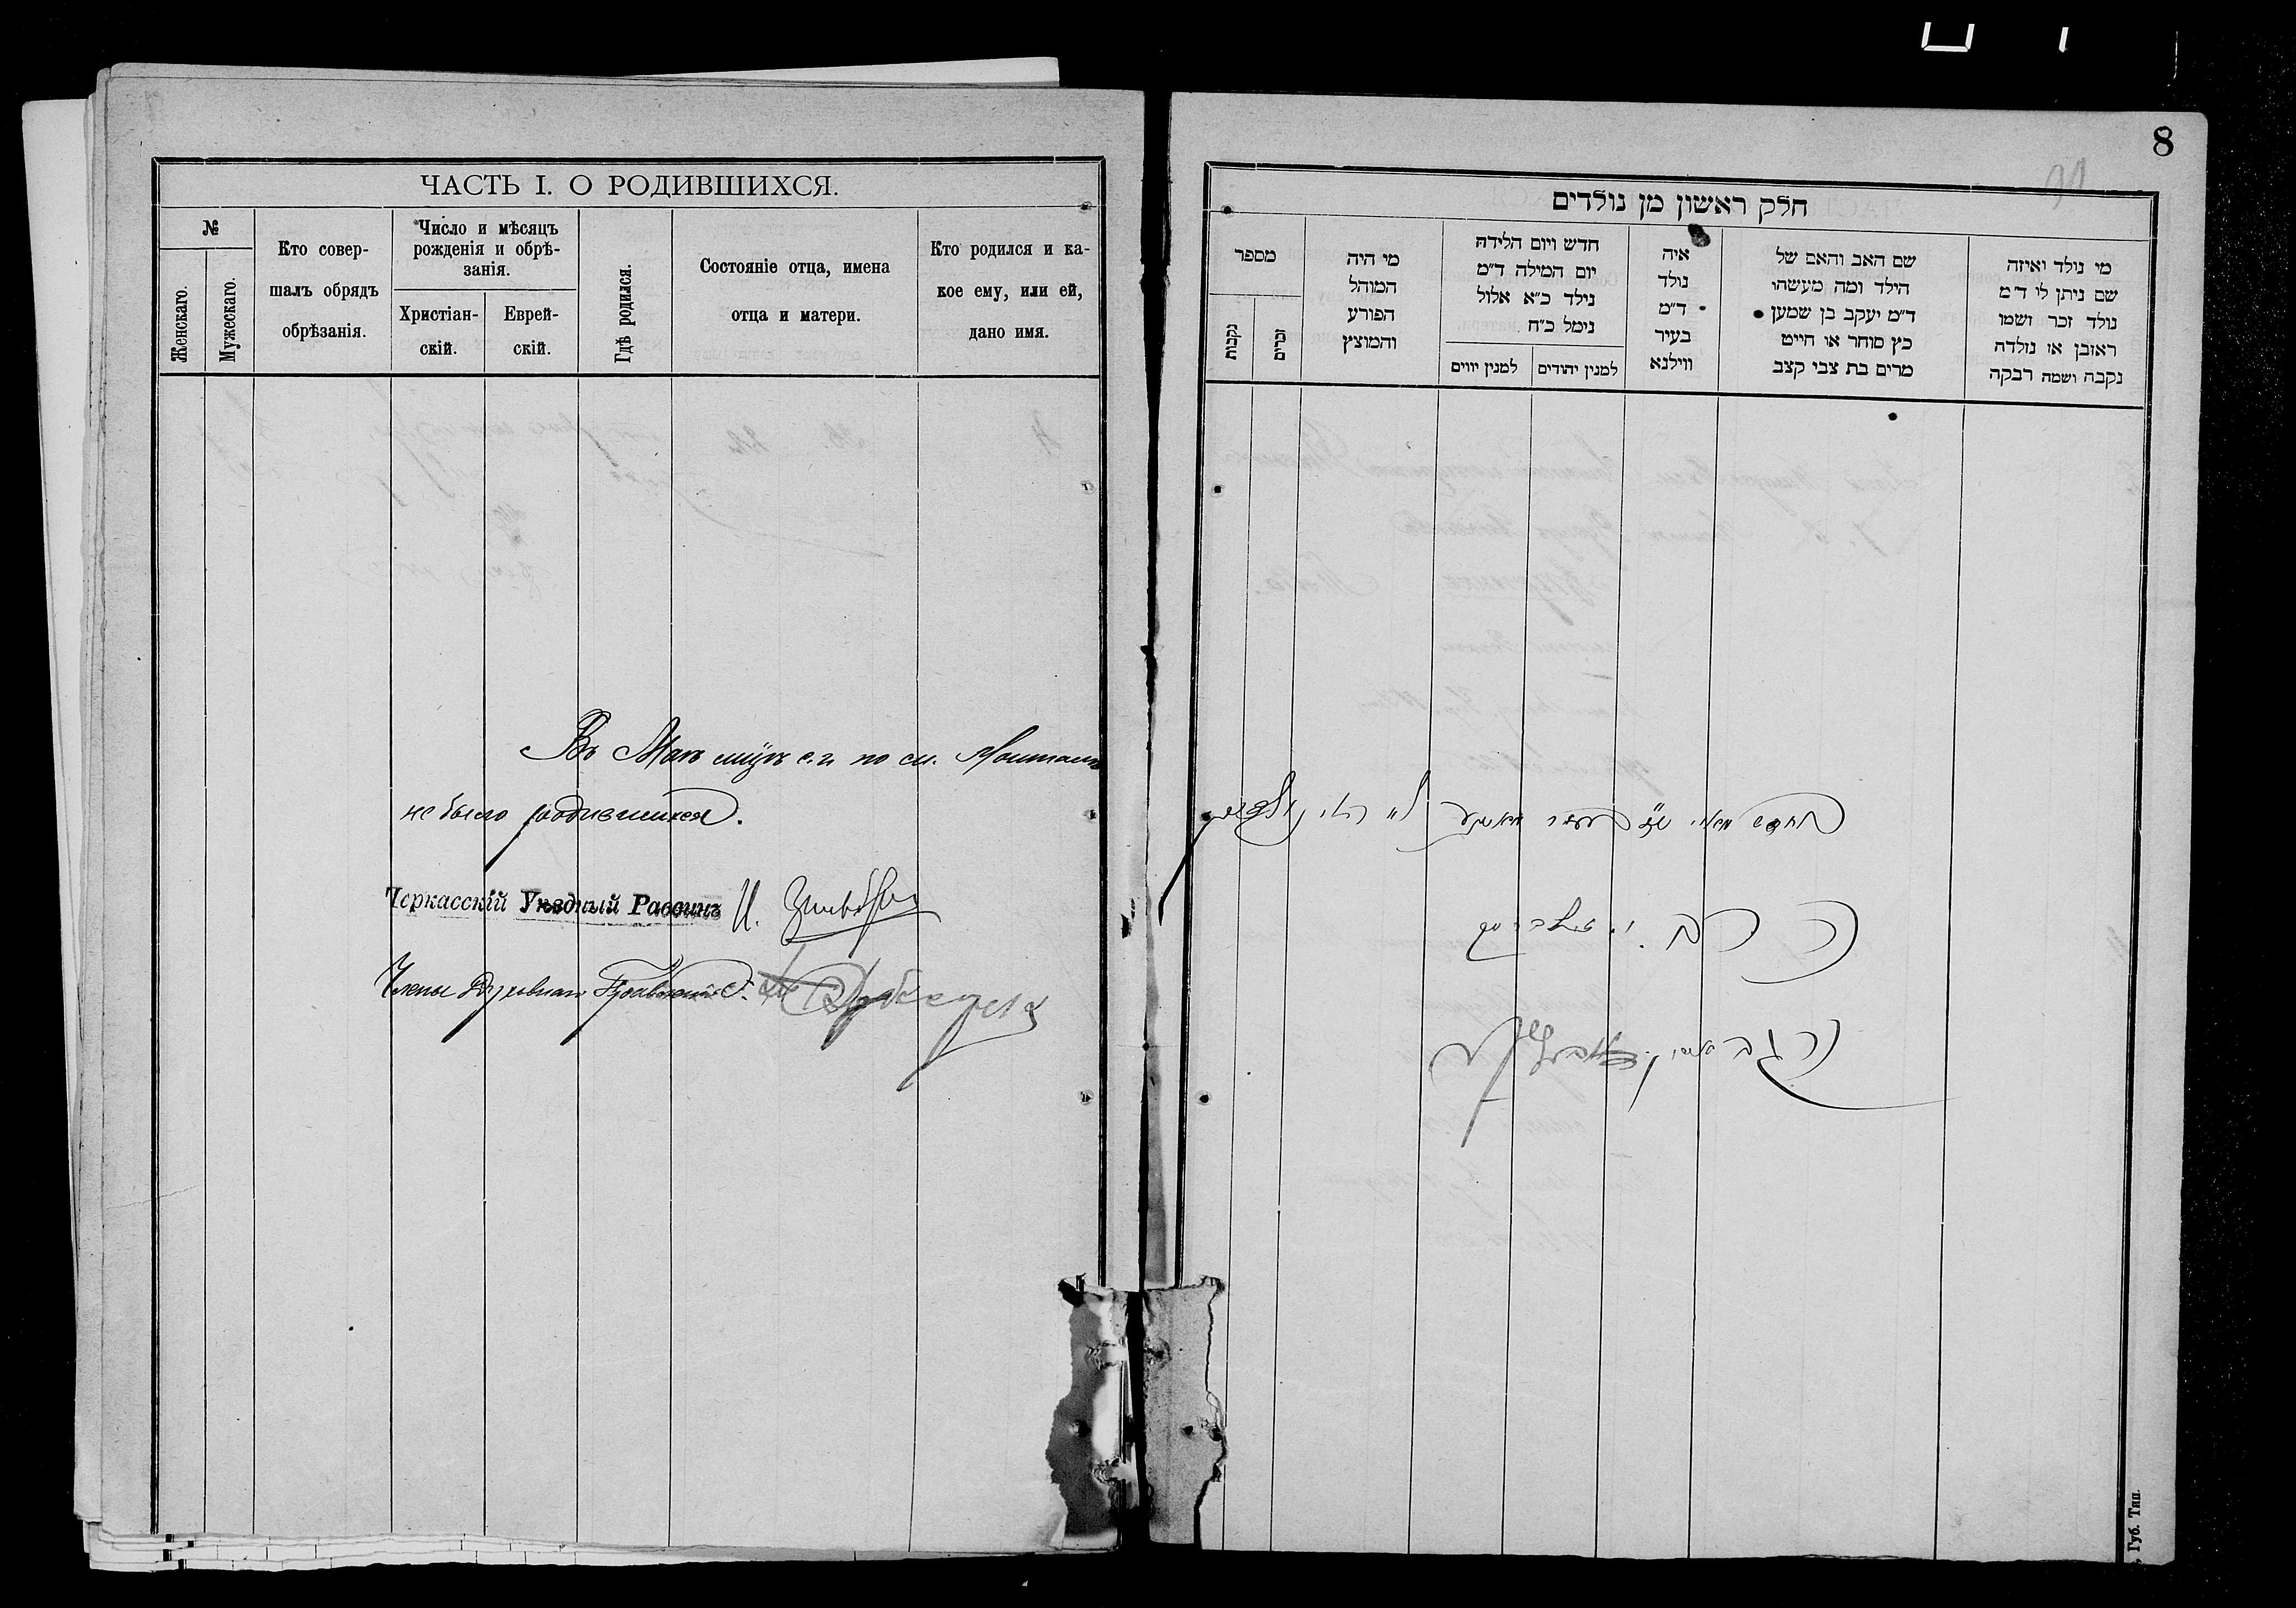 ЧАСТЬ I. О РОДИВШИХСЯ.
№
Женскаго.
Мужескаго.
Кто совер-
шалъ обрядъ
обрѣзанія.
Число и мѣсяцъ
рожденія и обрѣ-
занія.
Христіан-
скій.
Еврей-
скій.
Гдѣ родился.
Состояніе отца, имена
отца и матери.
Кто родился и ка-
кое ему, или ей,
дано имя.
Въ Маѣ мцѣ с.г. по см.
не было родившихся.
Черкасскій Уѣздный Раввинъ И.
Члены Духовнаго
8
חלק ראשון מן נולדים
מי נולד ואיזה
שם ניתן לו ד״מ
נולד זכר ושמו
ראובן או נולדה
נקבה ושמה רבקה
שם האב והאם של
הילד ומה מעשהו
ד״מ יעקב בן שמעון
כץ סוחר או חייט
מרים בת צבי קצב
איה
נולד
ד״מ
בעיר
ווילנא
חדש ויום הלידה
יום המילה ד״מ
נילד כ״א אלול
נימל כ״ח
למנין יהודים
למנין יווים
מי היה
המוהל
הפורע
והמוצץ
מספר
זכרים
נקבות
Губ. Тип.